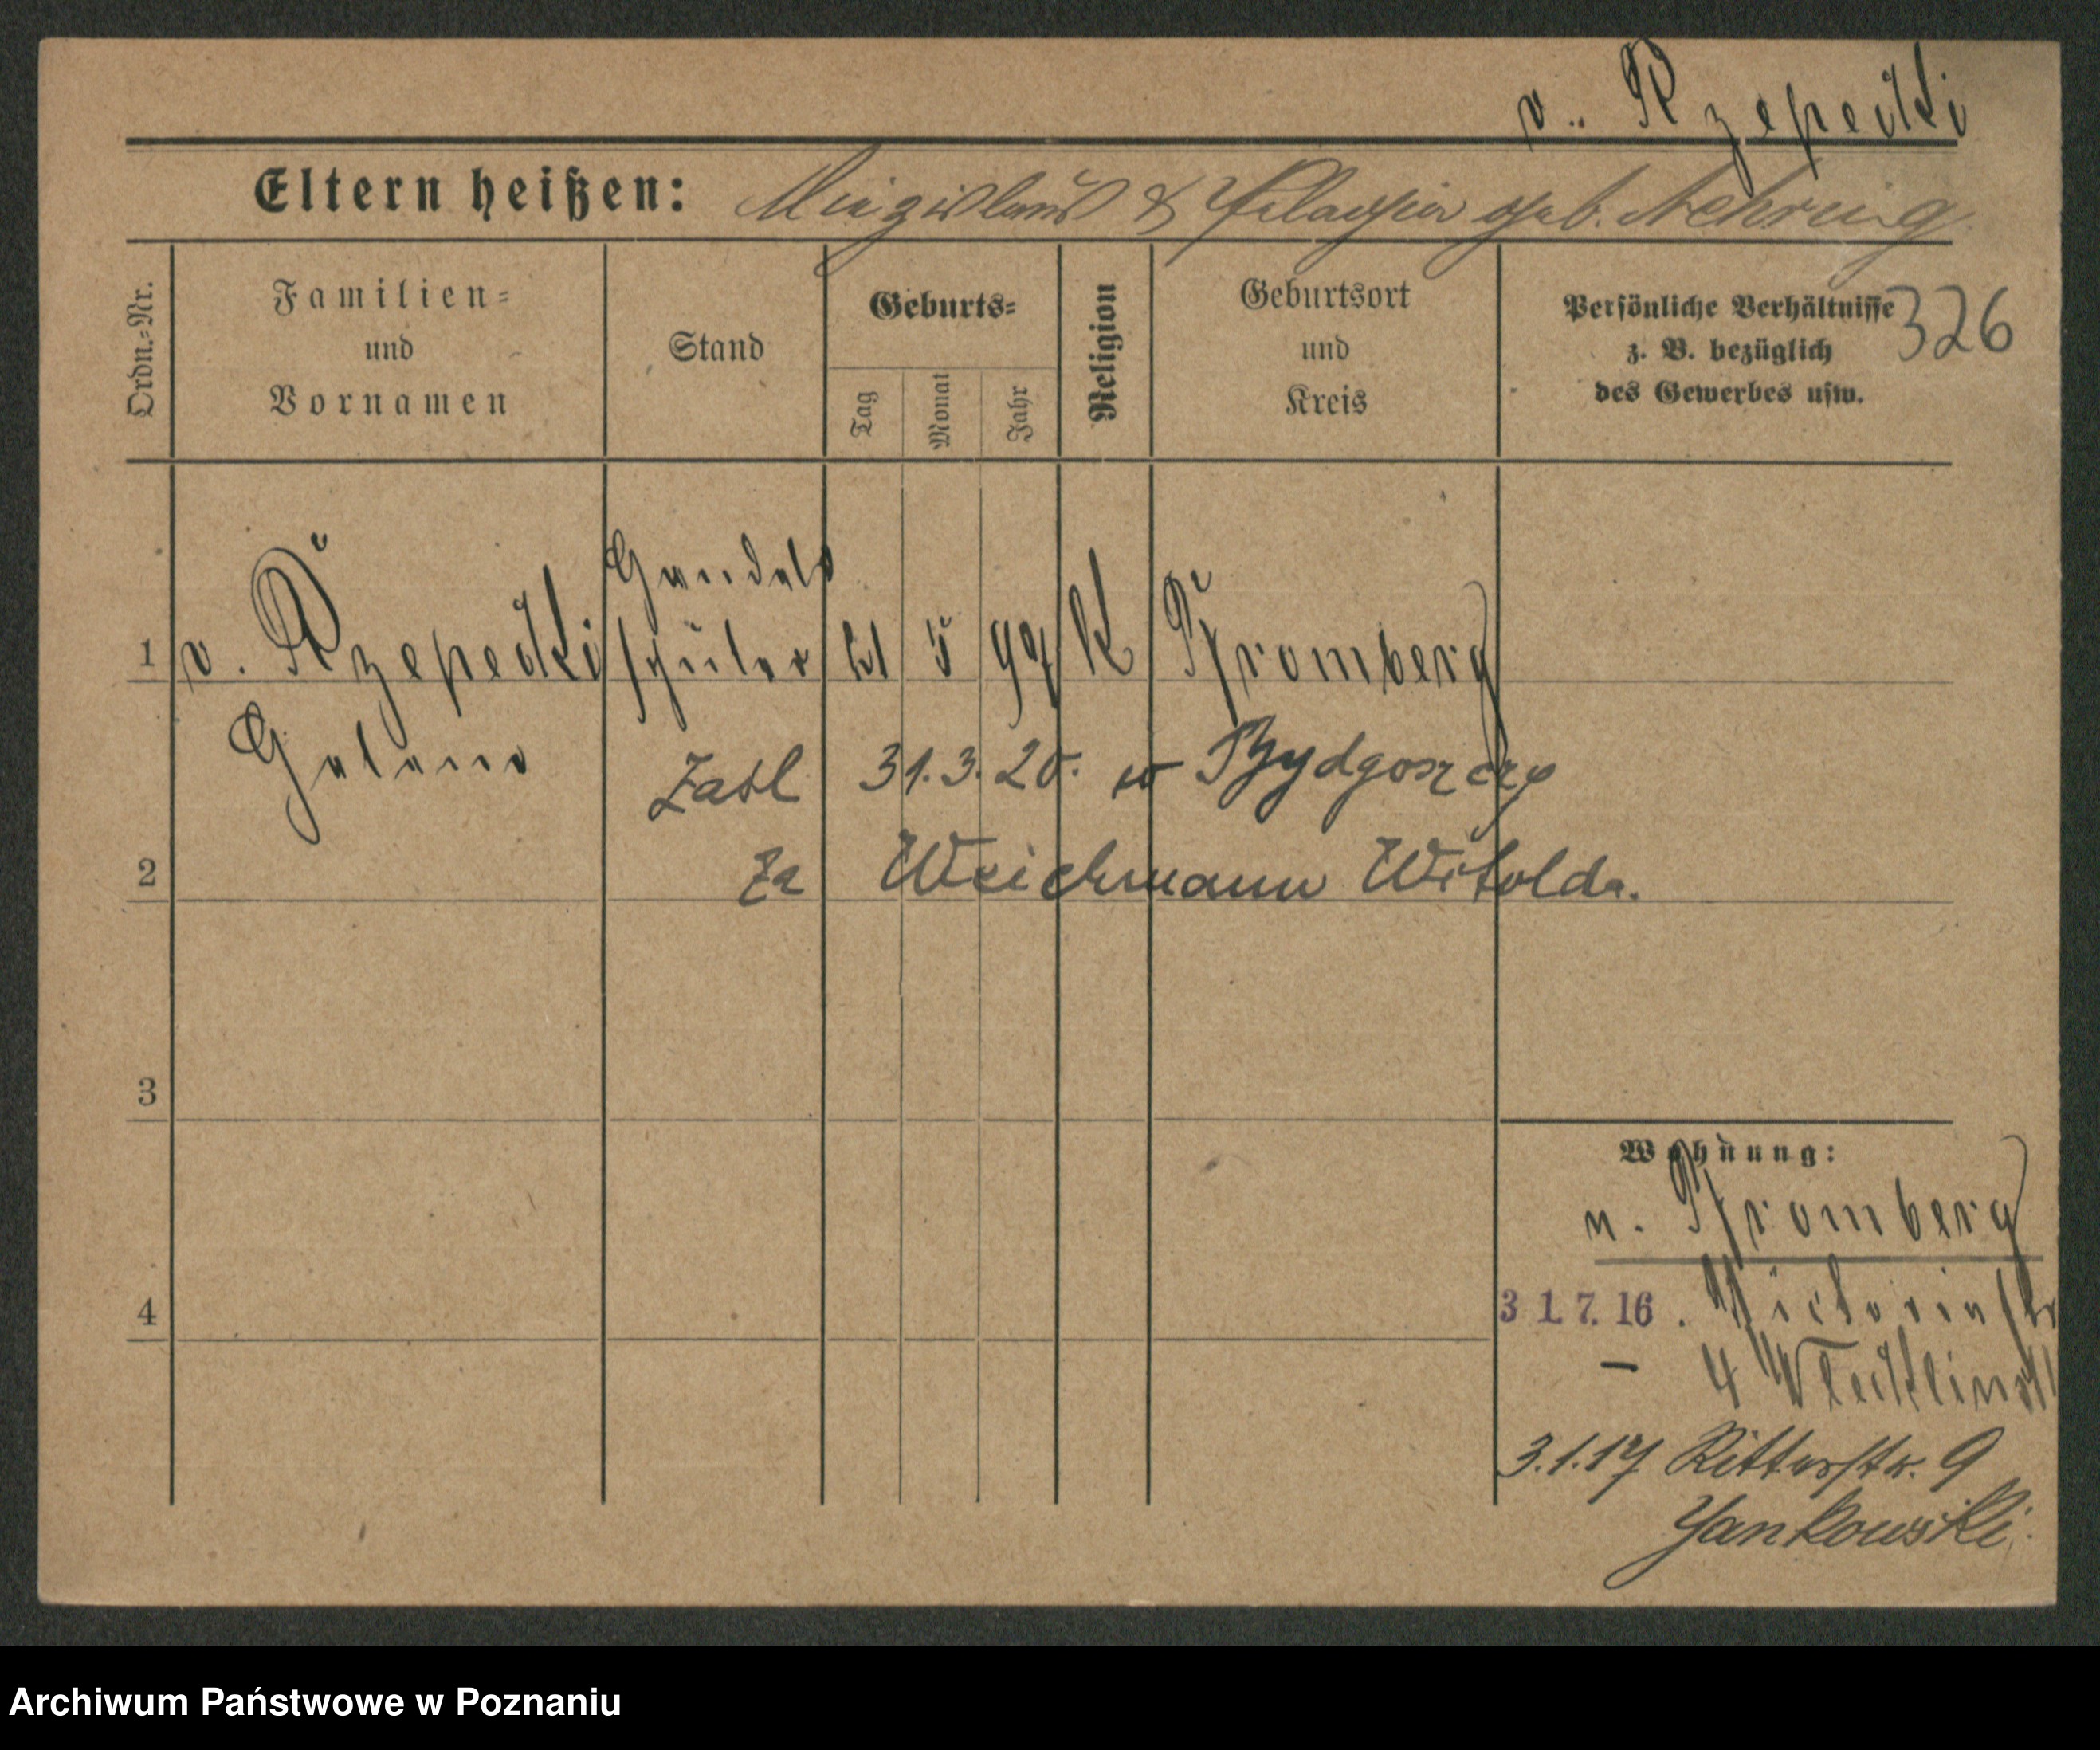 v. Rzepecki
Eltern heißen: Miezislaus & Pelagia geb. Nehring
Ordn.=Nr.
Familien=
und
Vornamen
Stand
Geburts=
Tag
Monat
Jahr
Religion
Geburtsort
und
Kreis
Persönliche Verhältnisse
z. B. bezüglich
des Gewerbes usw.
326
Handels
1 v. Rzepecki schüler 21 5 97 K Bromberg
Helene
Zaśl 31.3.20. w Bydgoszczy
2 za Weichmann Witolda.
3
Wohnung:
n. Bromberg
4 31.7.16. Victoriastr
– 4
3.1.17 Ritterstr. 9
Jankowski.
Archiwum Państwowe w Poznaniu